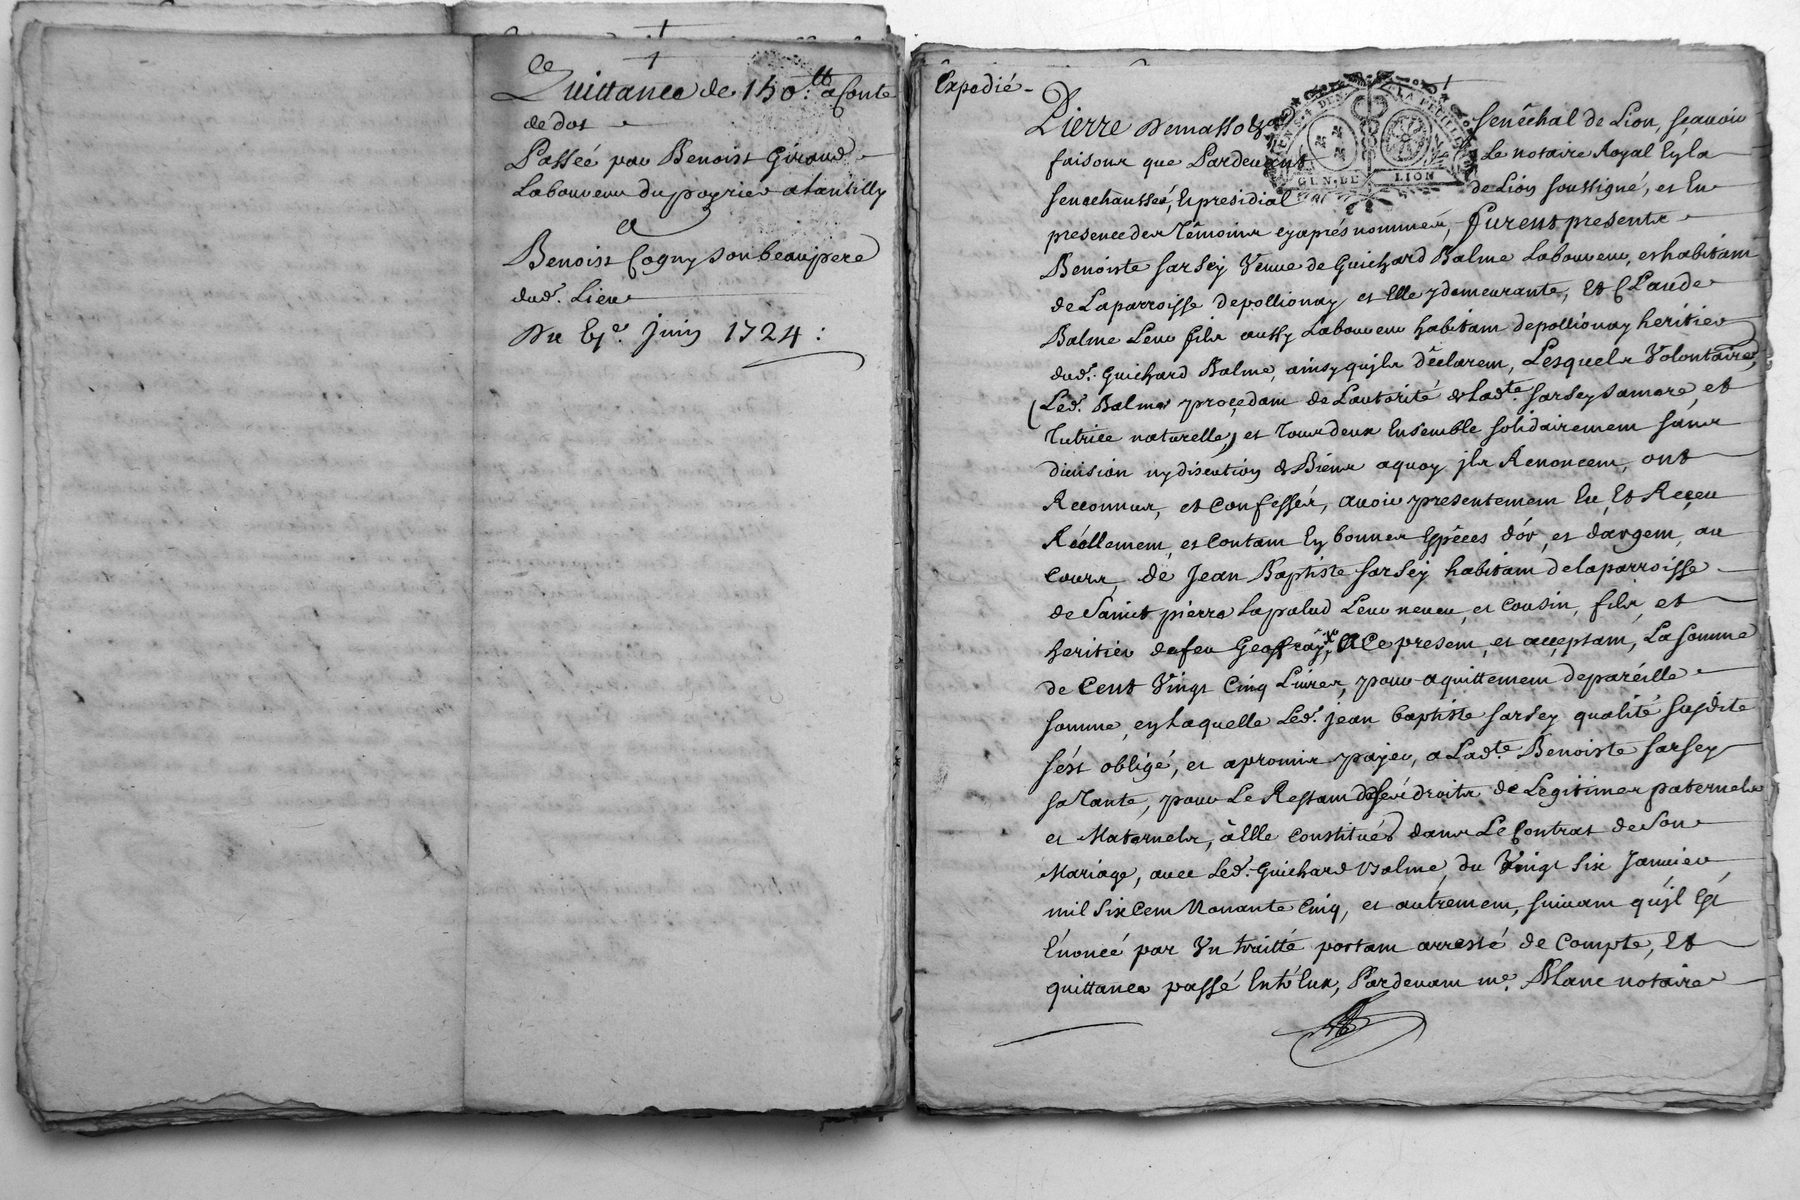 ce
Quittance de 150:tt a Conte
de dot
Passée par Benoist Giraud
Laboureur du poyrier a lantilly
A
Benoist Cogny son beaupere
dud. Lieu
Du Ey.e Juin 1724:
Expedié
Pierre Demasso Senêchal de Lion, sçavoir
faisons que Pardevant Le notaire Royal En la
senechaussée, Et presidial de Lion soussigné, et En
presence des Témoins cy apres nommés, furent presents
Benoiste Sarsey Veuve de Guichard Balme Laboureur, et habitant
de La parroisse de pollionay et Elle y demeurante, Et Claude
Balme Leur fils aussy Laboureur habitant de pollionay heritier
dud. Guichard Balme, ainsy qu'jls déclarent, Lesquels Volontaires,
(Led. Balme procedant de L'autorité de Lad.te Sarsey sa mere, et
Tutrice naturelle) et Tous deux Ensemble solidairement sans
division ny discution de Biens a quoy jls Renoncent, ont
Reconnus, et confessés, avoir presentement Eu, Et Reçeu
Réellement, et contant En bonnes Espêces d'or, et d'argent, au
Cours, de Jean Baptiste Sarsey habitant de la parroisse
de Saint pierre Lapalud Leur neveu, et cousin, fils, et
heritier de feu Geoffray, A Ce present, et acceptant, La somme
de Cent Vingt Cinq Livres, pour aquittement de pareille
somme, en Laquelle Led. jean baptiste Sarsey qualité susdite
s'est obligé, et a promis payer, a Lad.te Benoiste Sarsey
sa Tante, pour Le Restant de ses droits de Legitimes paternels
et Maternels, à Elle constitués dans Le Contrat de Son
Mariage, avec Led. Guichard Balme, du Vingt Six Janvier
mil Six Cent Nonante Cinq, et autrement, suivant qu'jl Est
Enoncé par Un traitté portant arresté de Compte, Et
quittance passé Entr'Eux, Pardevant m.e Blanc notaire
GEN. DE LION